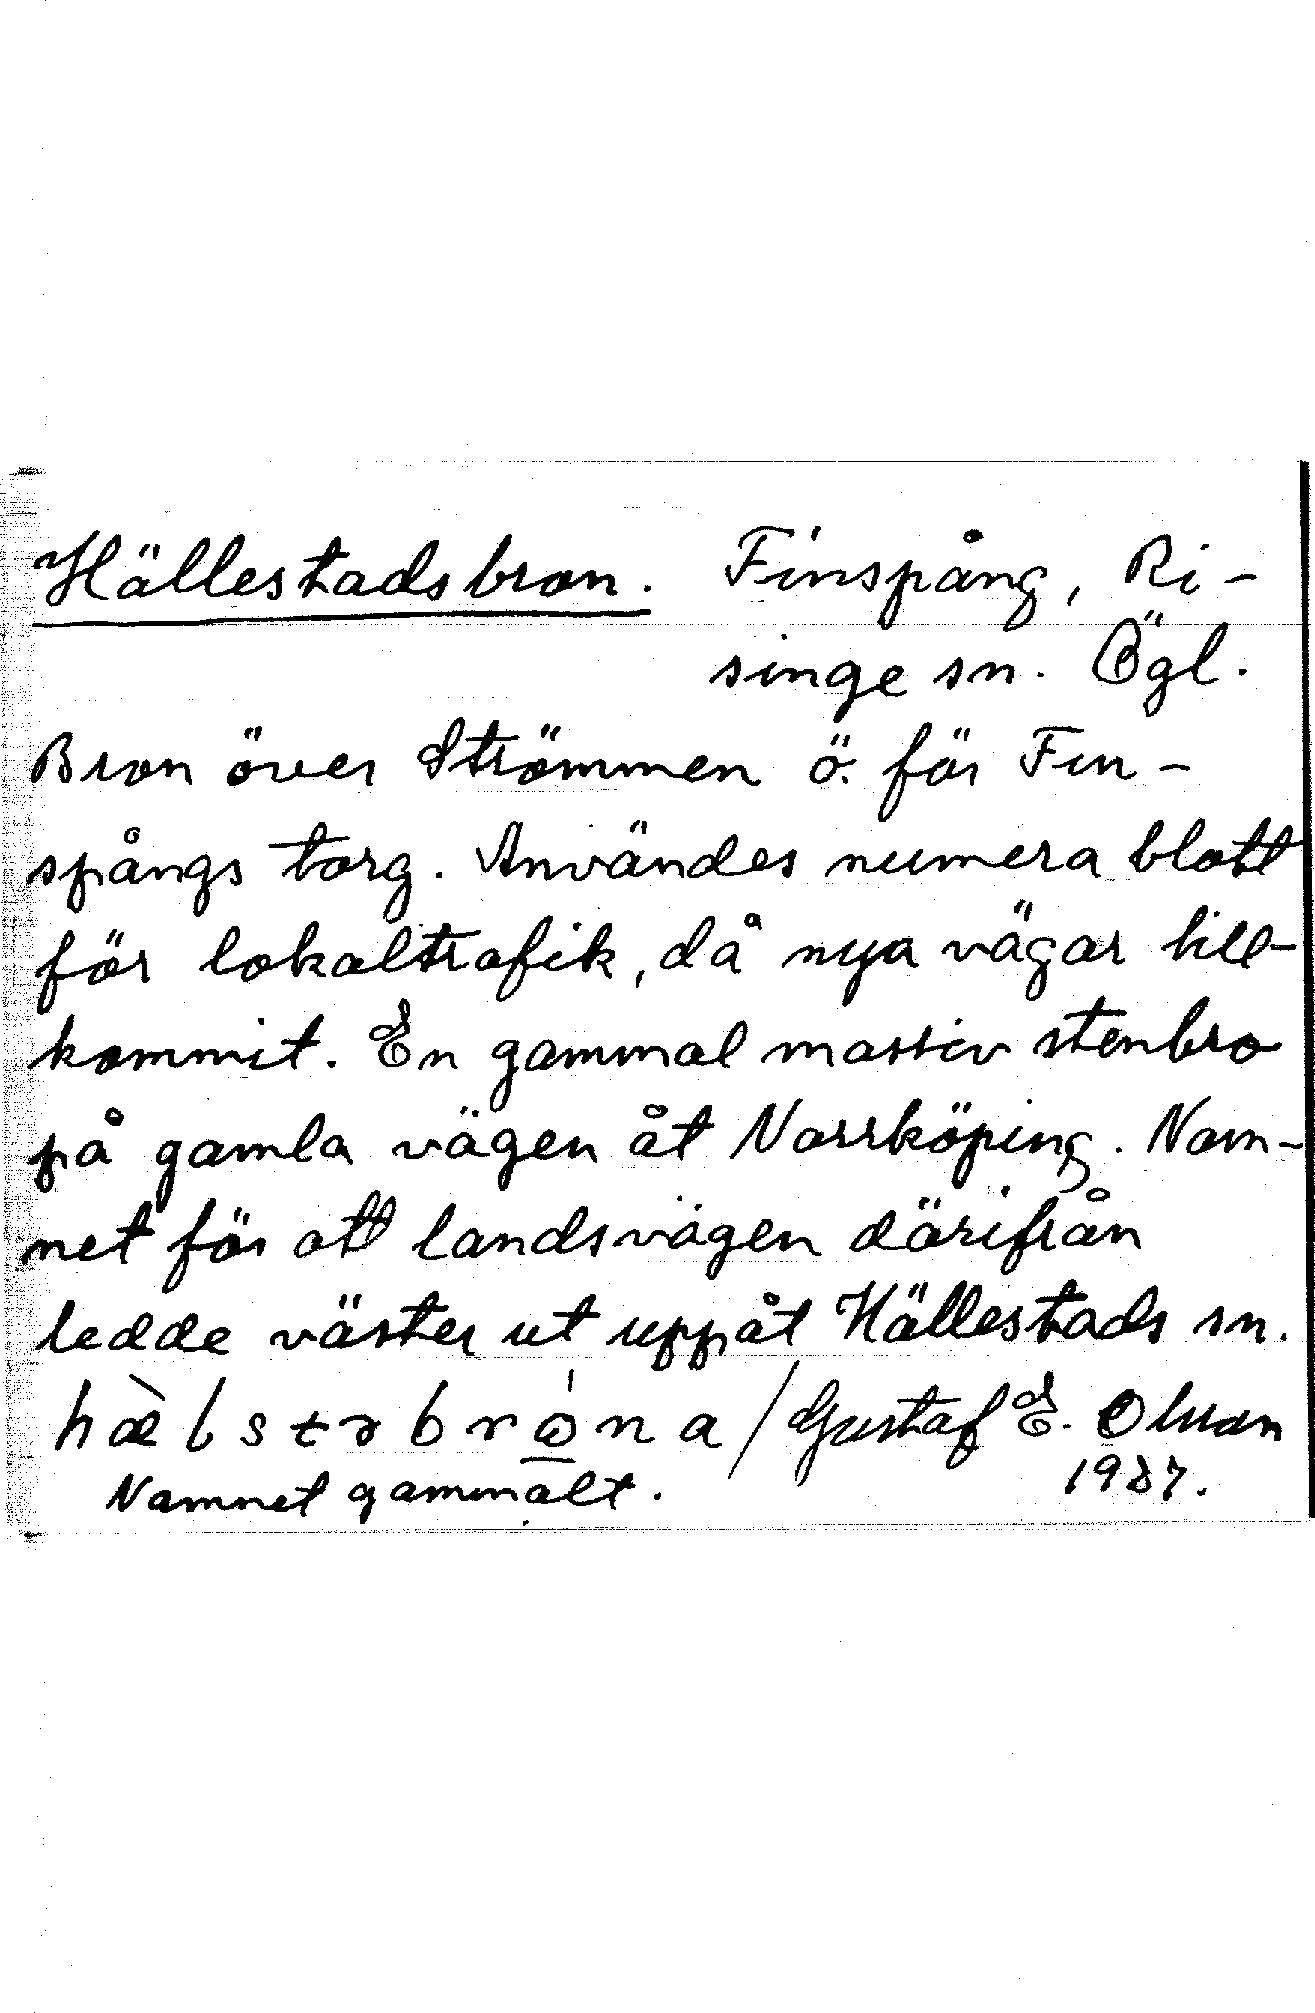 Hällestadsbron. Finspång, Ri-
singe sn. Ögl.
Bron över Strömmen ö. för Fin-
spångs torg. Användes numera blott
för lokaltrafik, då nya vägar till-
kommit. En gammal massiv stenbro
på gamla vägen åt Norrköping. Nam-
net för att landsvägen därifrån
ledde väster ut uppåt Hällestads sn.
/ Gustaf E. Olsson
Namnet gammalt. 1987.